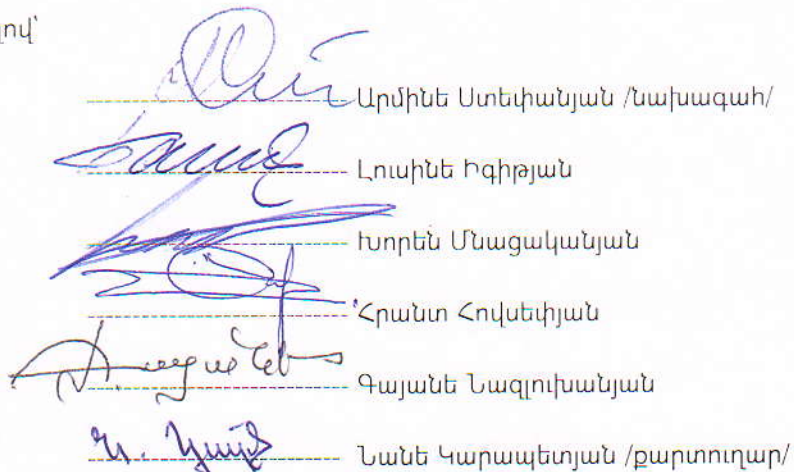 լով՝
Արմինե Ստեփանյան /նախագահ/
Լուսինե Իգիթյան
Խորեն Մնացականյան
Հրանտ Հովսեփյան
Գայանե Նազլուխանյան
Նանե Կարապետյան /քարտուղար/